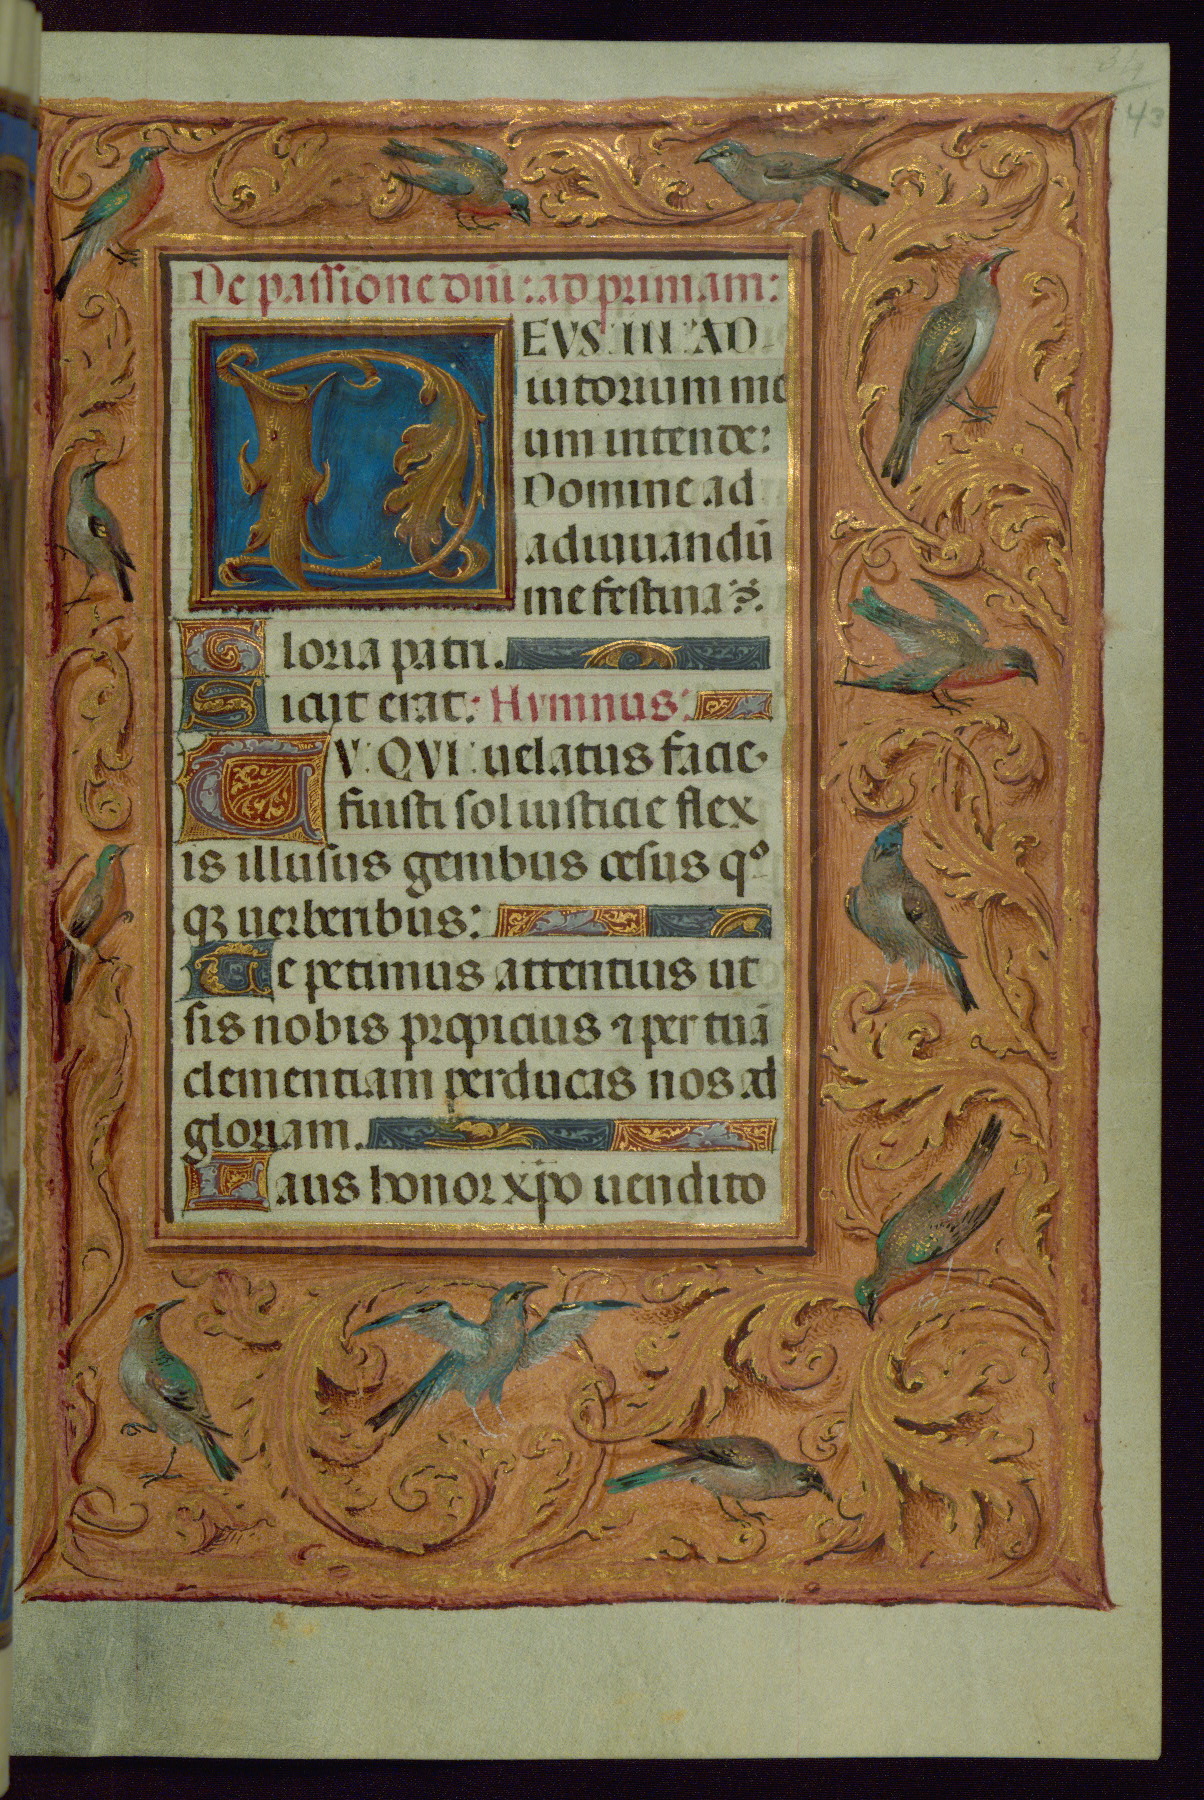 34
43
De passione dñi: ad primam:
DEVS IN AD
iutorium me
um intende:
Domine ad
adiuuandū
me festina
Gloria patri.
Sicut erat: Hymnus:
TV QVI uelatus facie
fuisti sol iusticie flex
is illusus genibus cesus qº
qꝫ uerberibus:
Te petimus attentius ut
sis nobis propicius ⁊ per tuā
clementiam perducas nos ad
gloriam.
Laus honor xp̄o uendito